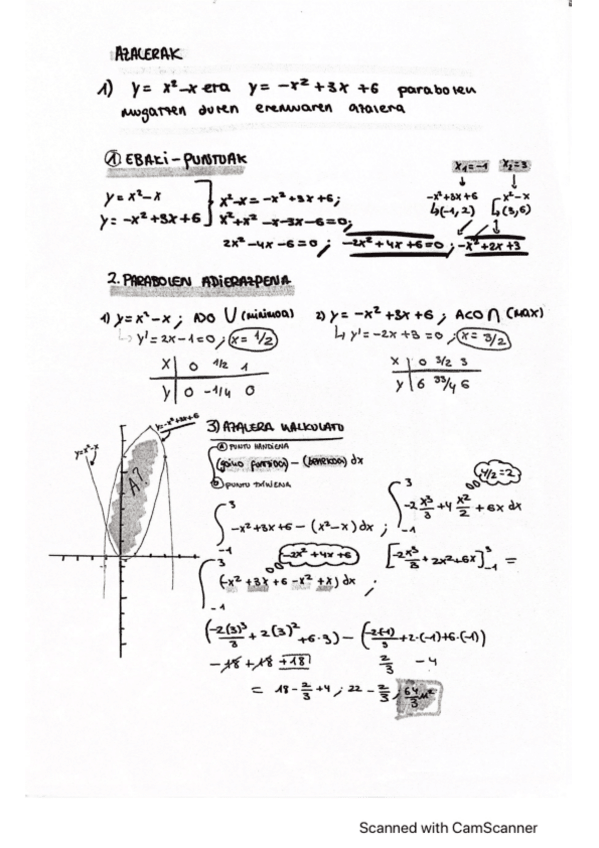 AZALERAK
1) y = x²-x eta y = -x²+3x+6 parabolen
mugatzen duten eremuaren azalera
① EBAKI-PUNTUAK
x₁=-1 x₂=3
y = x²-x
y = -x²+3x+6
x²-x = -x²+3x+6;
x²+x²-x-3x-6=0;
2x²-4x-6=0; -2x²+4x+6=0; -x²+2x+3
-x²+3x+6
↳(-1,2)
x²-x
↳(3,6)
2. PARABOLEN ADIERAZPENA
1) y = x²-x; ADO ∪ (MINIMOA)
↳ y' = 2x-1=0; x = 1/2
x | 0 1/2 1
y | 0 -1/4 0
2) y = -x²+3x+6; ACO ∩ (MAX)
↳ y' = -2x+3=0; x = 3/2
x | 0 3/2 3
y | 6 33/4 6
y=x²-x
y=-x²+3x+6
A?
3) AZALERA KALKULATU
ⓐ PUNTU HANDIENA
∫ (goiko funtzioa) - (beherkoa) dx
ⓑ PUNTU TXIKIENA
∫₋₁³ -x²+3x+6-(x²-x)dx;
4/2=2
∫₋₁³ -2x³/3+4x²/2+6x dx
-2x²+4x+6
∫₋₁³ (-x²+3x+6-x²+x)dx;
[-2x³/3+2x²+6x]₋₁³ =
(-2(3)³/3+2(3)²+6·3)-(-2(-1)/3+2·(-1)+6·(-1))
-18+18+18 2/3 -4
= 18-2/3+4; 22-2/3; 64/3 u²
Scanned with CamScanner